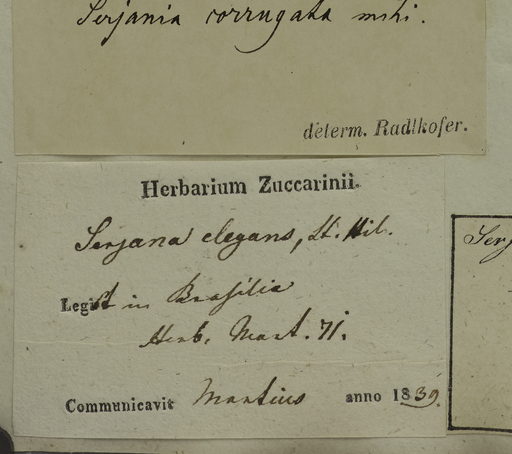 Serjania corrugata mihi.
determ. Radlkofer.
Herbarium Zuccarinii.
Serjana elegans, St. Hil.
Legit in Brasilia
Herb. Mart. 71.
Communicavit Martius anno 1839.
Serj